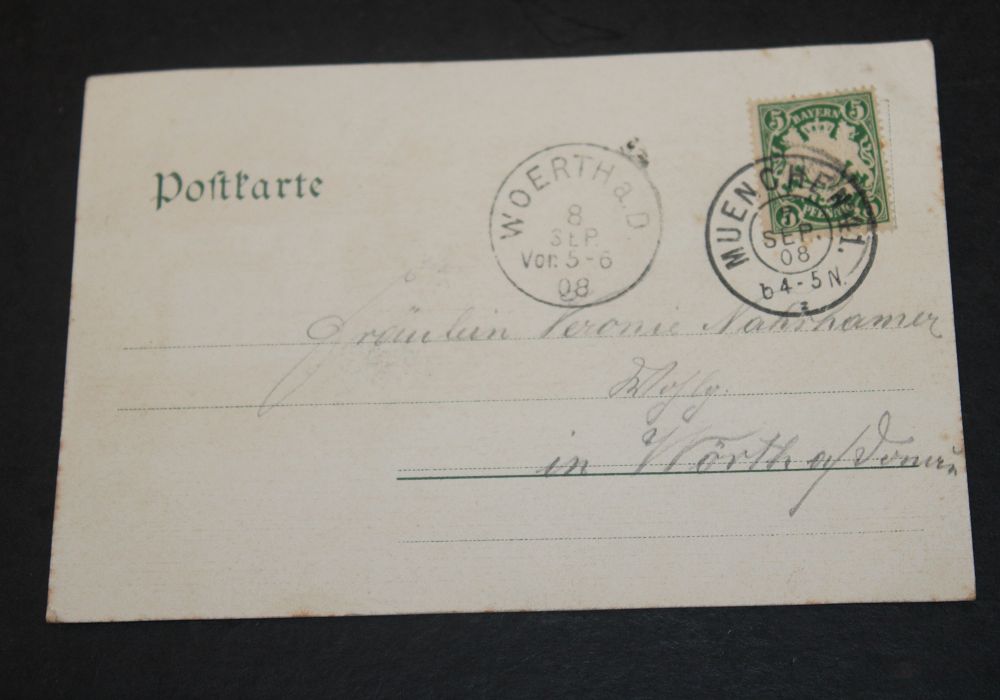 Postkarte
5 BAYERN 5
PFENNIG
WOERTH a.D.
8
SEP.
Vor. 5-6
08
MUENCHEN
SEP.
08
b 4-5 N.
Fräulein Veronie Nahrhamer
Wohlg.
in Wörth a/Donau